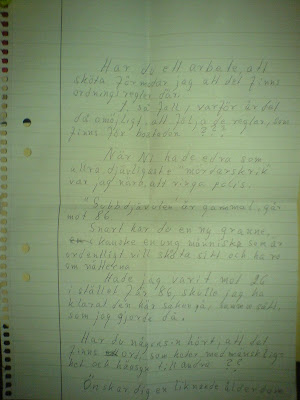 Har du ett arbete, att
sköta förmodar jag att det finns
ordningsregler där.
I, så fall, varför är det
då omöjligt, att följa de regler, som
finns för bostaden ???
När Ni hade edra som
allra djävligaste "mordarskrik"
var jag nära, att ringa polis.
är gammal, går
mot 86.
Snart har du en ny granne,
kanske en ung människa som är
ordentligt vill sköta sitt och ha ro
om nätterna
Hade jag varit mot 26
i stället för 86, skulle jag ha
klarat den här saken på samma sätt,
som jag gjorde då.
Har du någonsin hört, att det
finns ord, som heter medmänsklig-
het och hänsyn till andra ??
Önskar dig en liknande ålderdom